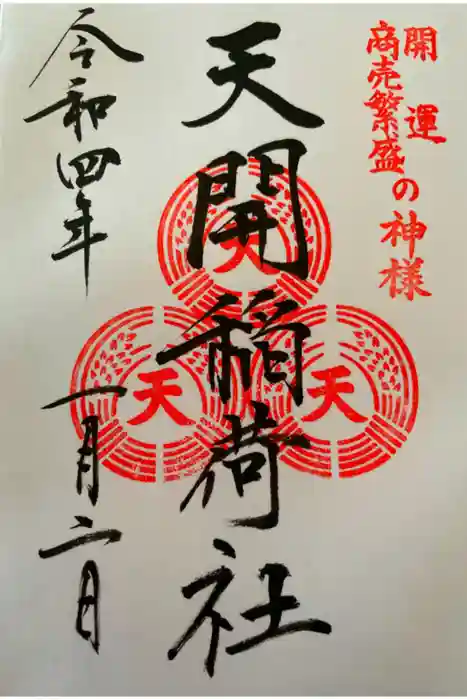 開運
商売繁盛の神様
天開稲荷社
天
天
天
令和四年
一月二日